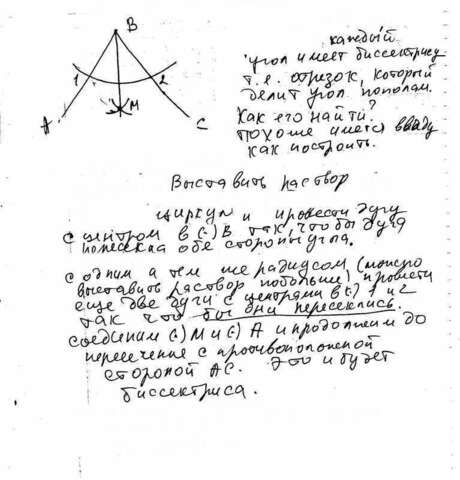 B
1
2
M
A
C
каждый
угол имеет биссектрису
т.е. отрезок, который
делит угол пополам.
Как его найти?
похоже имеется ввиду
как построить.
Выставить раствор
циркуля и провести дугу
с центром в (·) B так, чтобы дуга
обе стороны угла.
с одним а тем же радиусом (можно
выставить раствор побольше) провести
еще две дуги с центрами в (·) 1 и 2
так что бы они пересеклись.
соединим (·) M и (·) A и продолжим до
пересечение с противоположной
стороной AC. Это и будет
биссектриса.